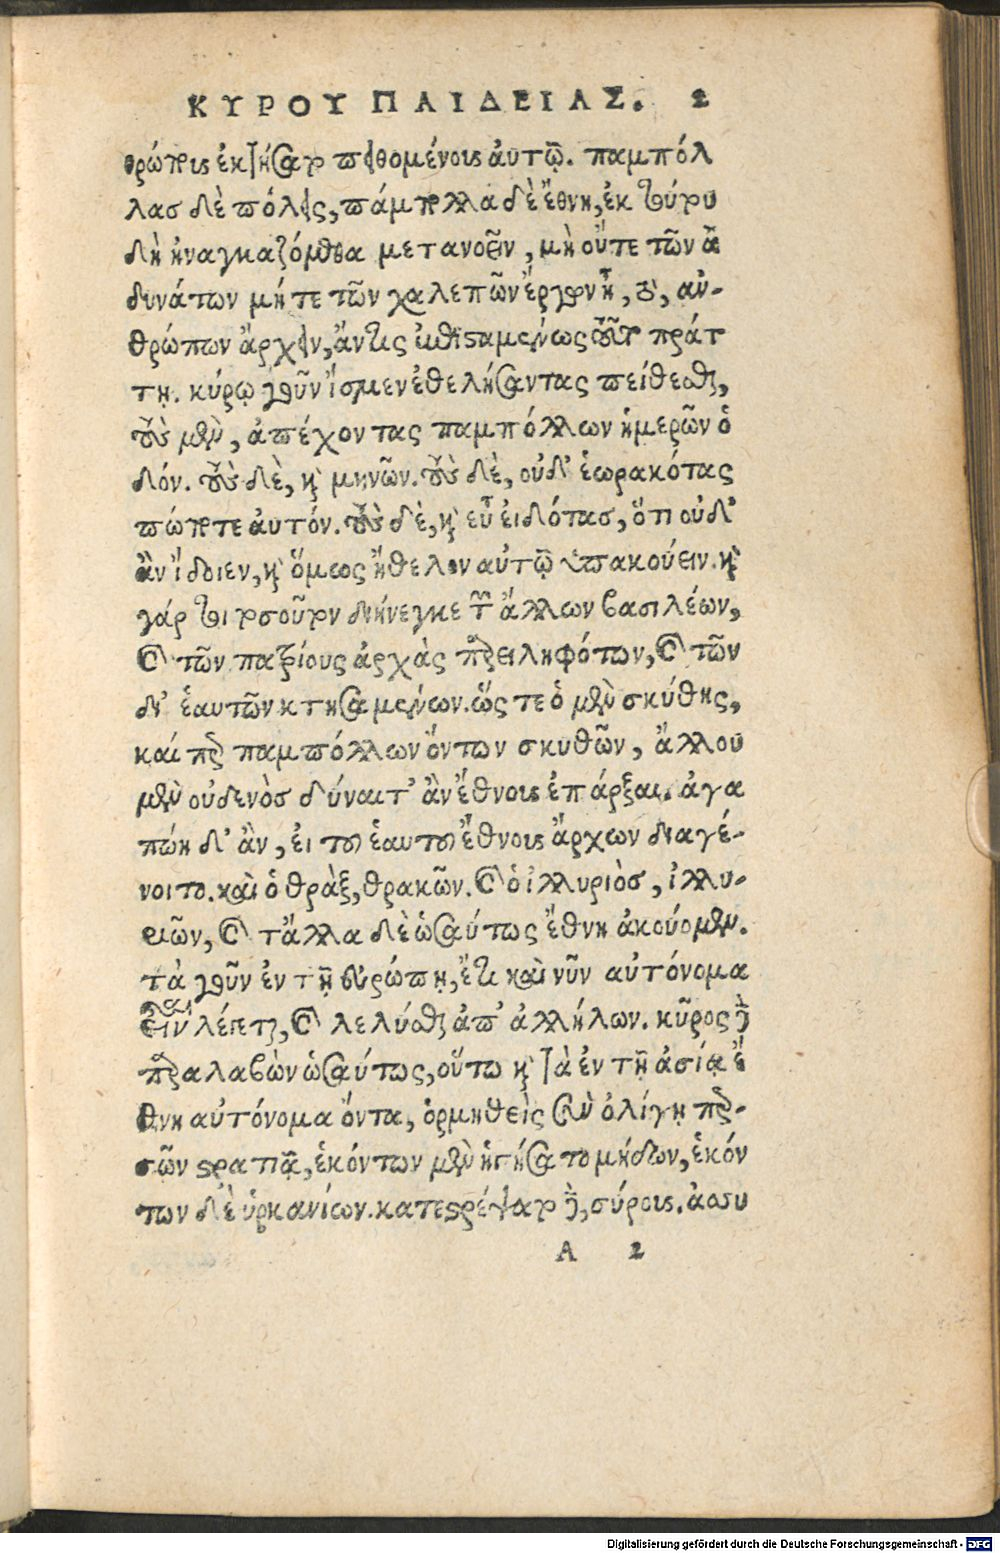 ΚΥΡΟΥ ΠΑΙΔΕΙΑΣ. 2
θρώπους ἐκτήσατο πειθομένους αὐτῷ. παμπόλ
λας δὲ πόλεις, πάμπολλα δὲ ἔθνη, ἐκ τούτου
δὴ ἠναγκαζόμεθα μετανοεῖν, μὴ οὔτε τῶν ἀ
δυνάτων μήτε τῶν χαλεπῶν ἔργων ᾖ, τὸ, ἀν-
θρώπων ἄρχειν, ἄν τις ἐπισταμένως τοῦτο πράτ
τῃ. κύρῳ γοῦν ἴσμεν ἐθελήσαντας πείθεσθαι,
τοὺς μὲν, ἀπέχοντας παμπόλλων ἡμερῶν ὁ
δόν. τοὺς δὲ, καὶ μηνῶν. τοὺς δὲ, οὐδ' ἑωρακότας
πώποτε αὐτόν. τοὺς δὲ, καὶ εὖ εἰδότας, ὅτι οὐδ'
ἂν ἴδοιεν, καὶ ὅμως ἤθελον αὐτῷ ὑπακούειν. καὶ
γάρ τοι τοσοῦτον διήνεγκε τῶν ἄλλων βασιλέων,
καὶ τῶν πατρίους ἀρχὰς παρειληφότων, καὶ τῶν
δι' ἑαυτῶν κτησαμένων. ὥς τε ὁ μὲν σκύθης,
καίπερ παμπόλλων ὄντων σκυθῶν, ἄλλου
μὲν οὐδενὸς δύναιτ' ἂν ἔθνους ἐπάρξαι. ἀγα
πώη δ' ἂν, εἰ τοῦ ἑαυτοῦ ἔθνους ἄρχων διαγέ-
νοιτο. καὶ ὁ θρὰξ, θρακῶν. καὶ ὁ ἰλλυριὸς, ἰλλυ-
ριῶν, καὶ τἄλλα δὲ ὡσαύτως ἔθνη ἀκούομεν.
τὰ γοῦν ἐν τῇ εὐρώπῃ, ἔτι καὶ νῦν αὐτόνομα
εἶναι λέγεται, καὶ λελύσθαι ἀπ' ἀλλήλων. κῦρος δὲ
παραλαβὼν ὡσαύτως, οὕτω καὶ τὰ ἐν τῇ ἀσίᾳ ἔ
θνη αὐτόνομα ὄντα, ὁρμηθεὶς σὺν ὀλίγῃ περ-
σῶν στρατιᾷ, ἑκόντων μὲν ἡγήσατο μήδων, ἑκόν
των δὲ ὑρκανίων. κατεστρέψατο δὲ, σύρους. ἀσσυ
A 2
Digitalisierung gefördert durch die Deutsche Forschungsgemeinschaft - DFG